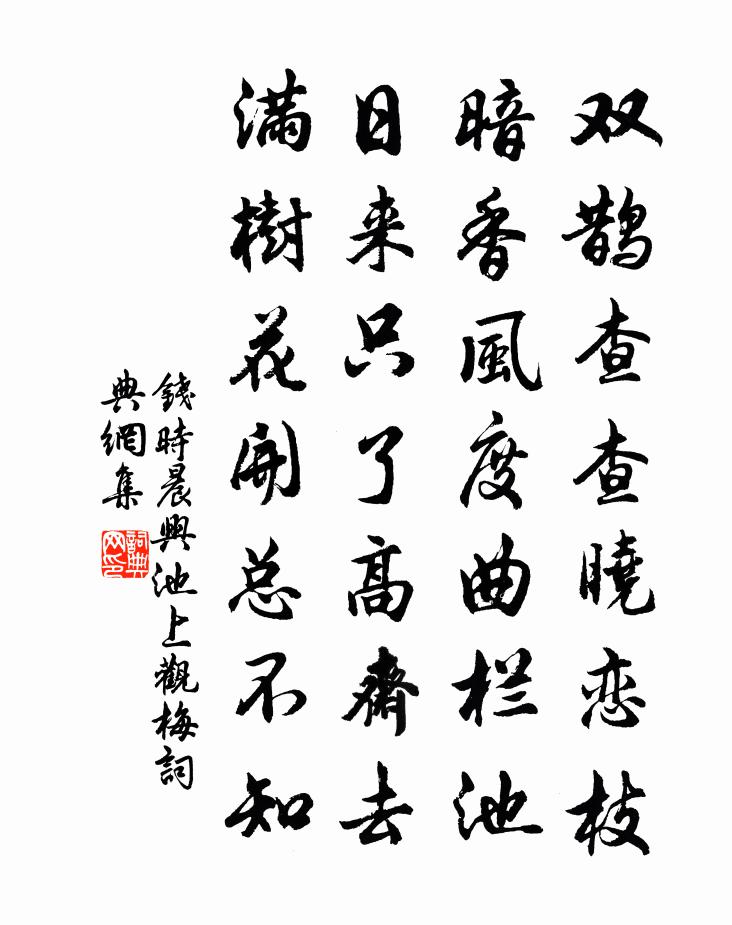 双鹊查查曉恋枝
暗香風度曲栏池
日来只了高齋去
满樹花開总不知
錢時晨興池上觀梅詞
典網集
詞典
网印